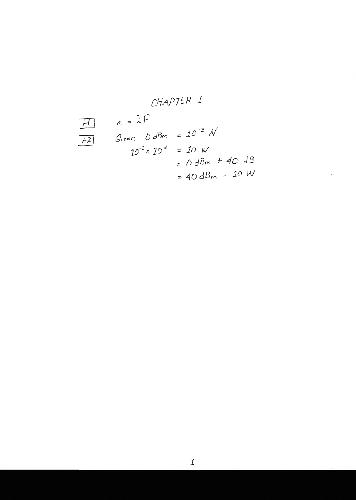 CHAPTER 1
1.1 c = λF
1.2 Given 0 dBm = 10⁻³ W
10⁻³ × 10⁴ = 10 W
= 0 dBm + 40 dB
= 40 dBm = 10 W
1